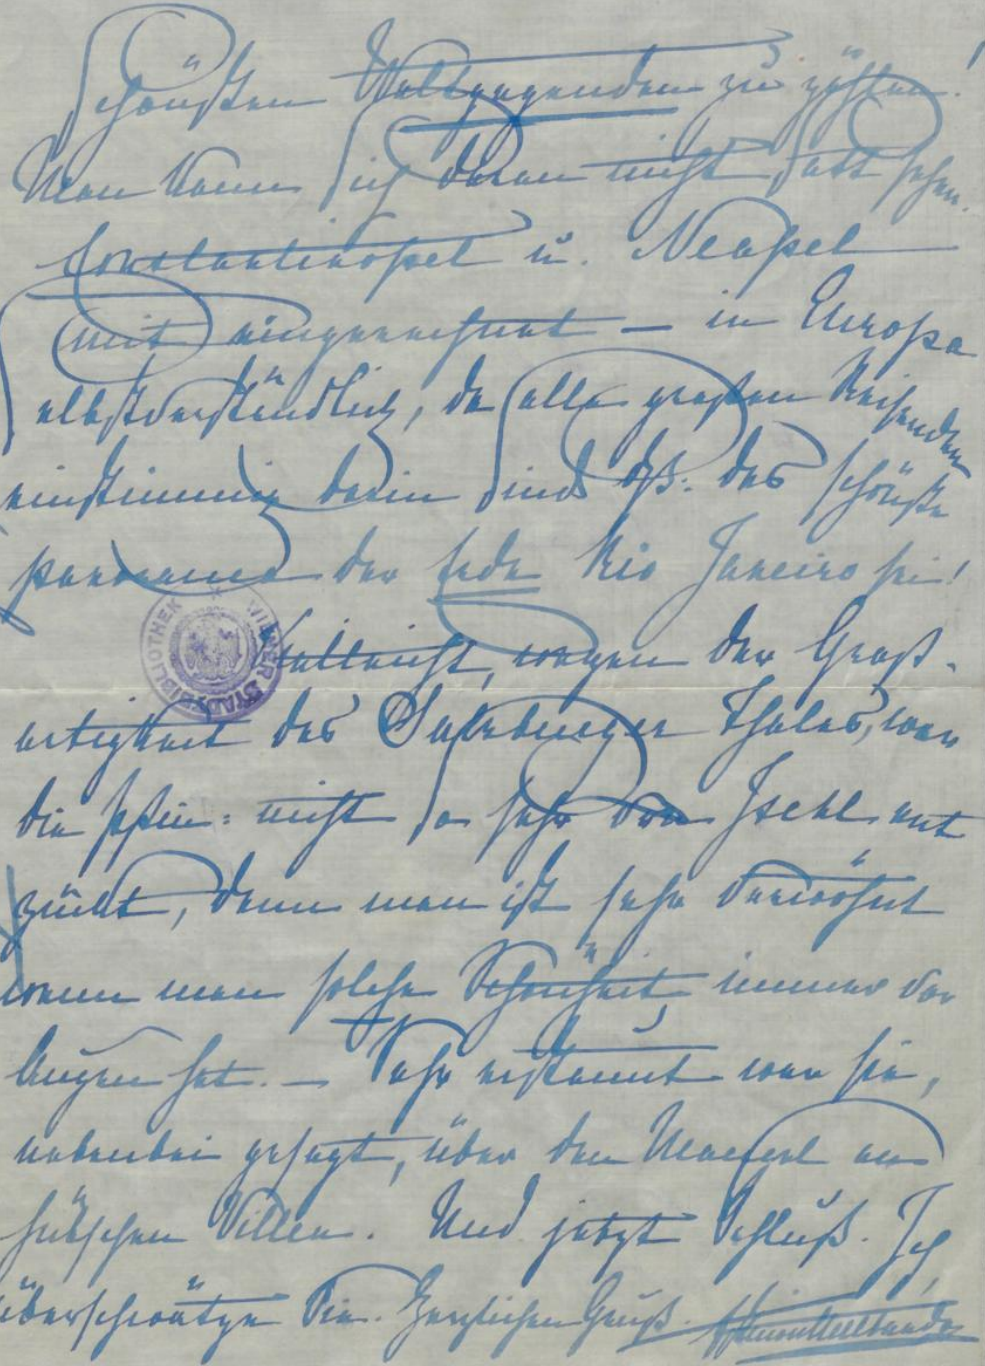 schönsten Weltgegenden zu zählen!
Man kann sich daran nicht satt sehen.
Constantinopel u. Neapel
mit eingerechnet — in Europa
selbstverständlich, da alle großen Reisenden
einstimmig darin sind dß. das schönste
Panorama der Erde Rio Janeiro sei!
Vielleicht, wegen der Groß-
artigkeit des Salzburger Thales, war
die nicht so sehr von Ischl ent
zückt, denn man ist sehr verwöhnt
wenn man solche Schönheit immer vor
Augen hat. — Sehr erstaunt war sie,
nebenbei gesagt, über den Mangel an
hübschen Villen. Und jetzt Schluß. Ich
überschwätze Sie. Herzlichen Gruß
WIENER STADTBIBLIOTHEK